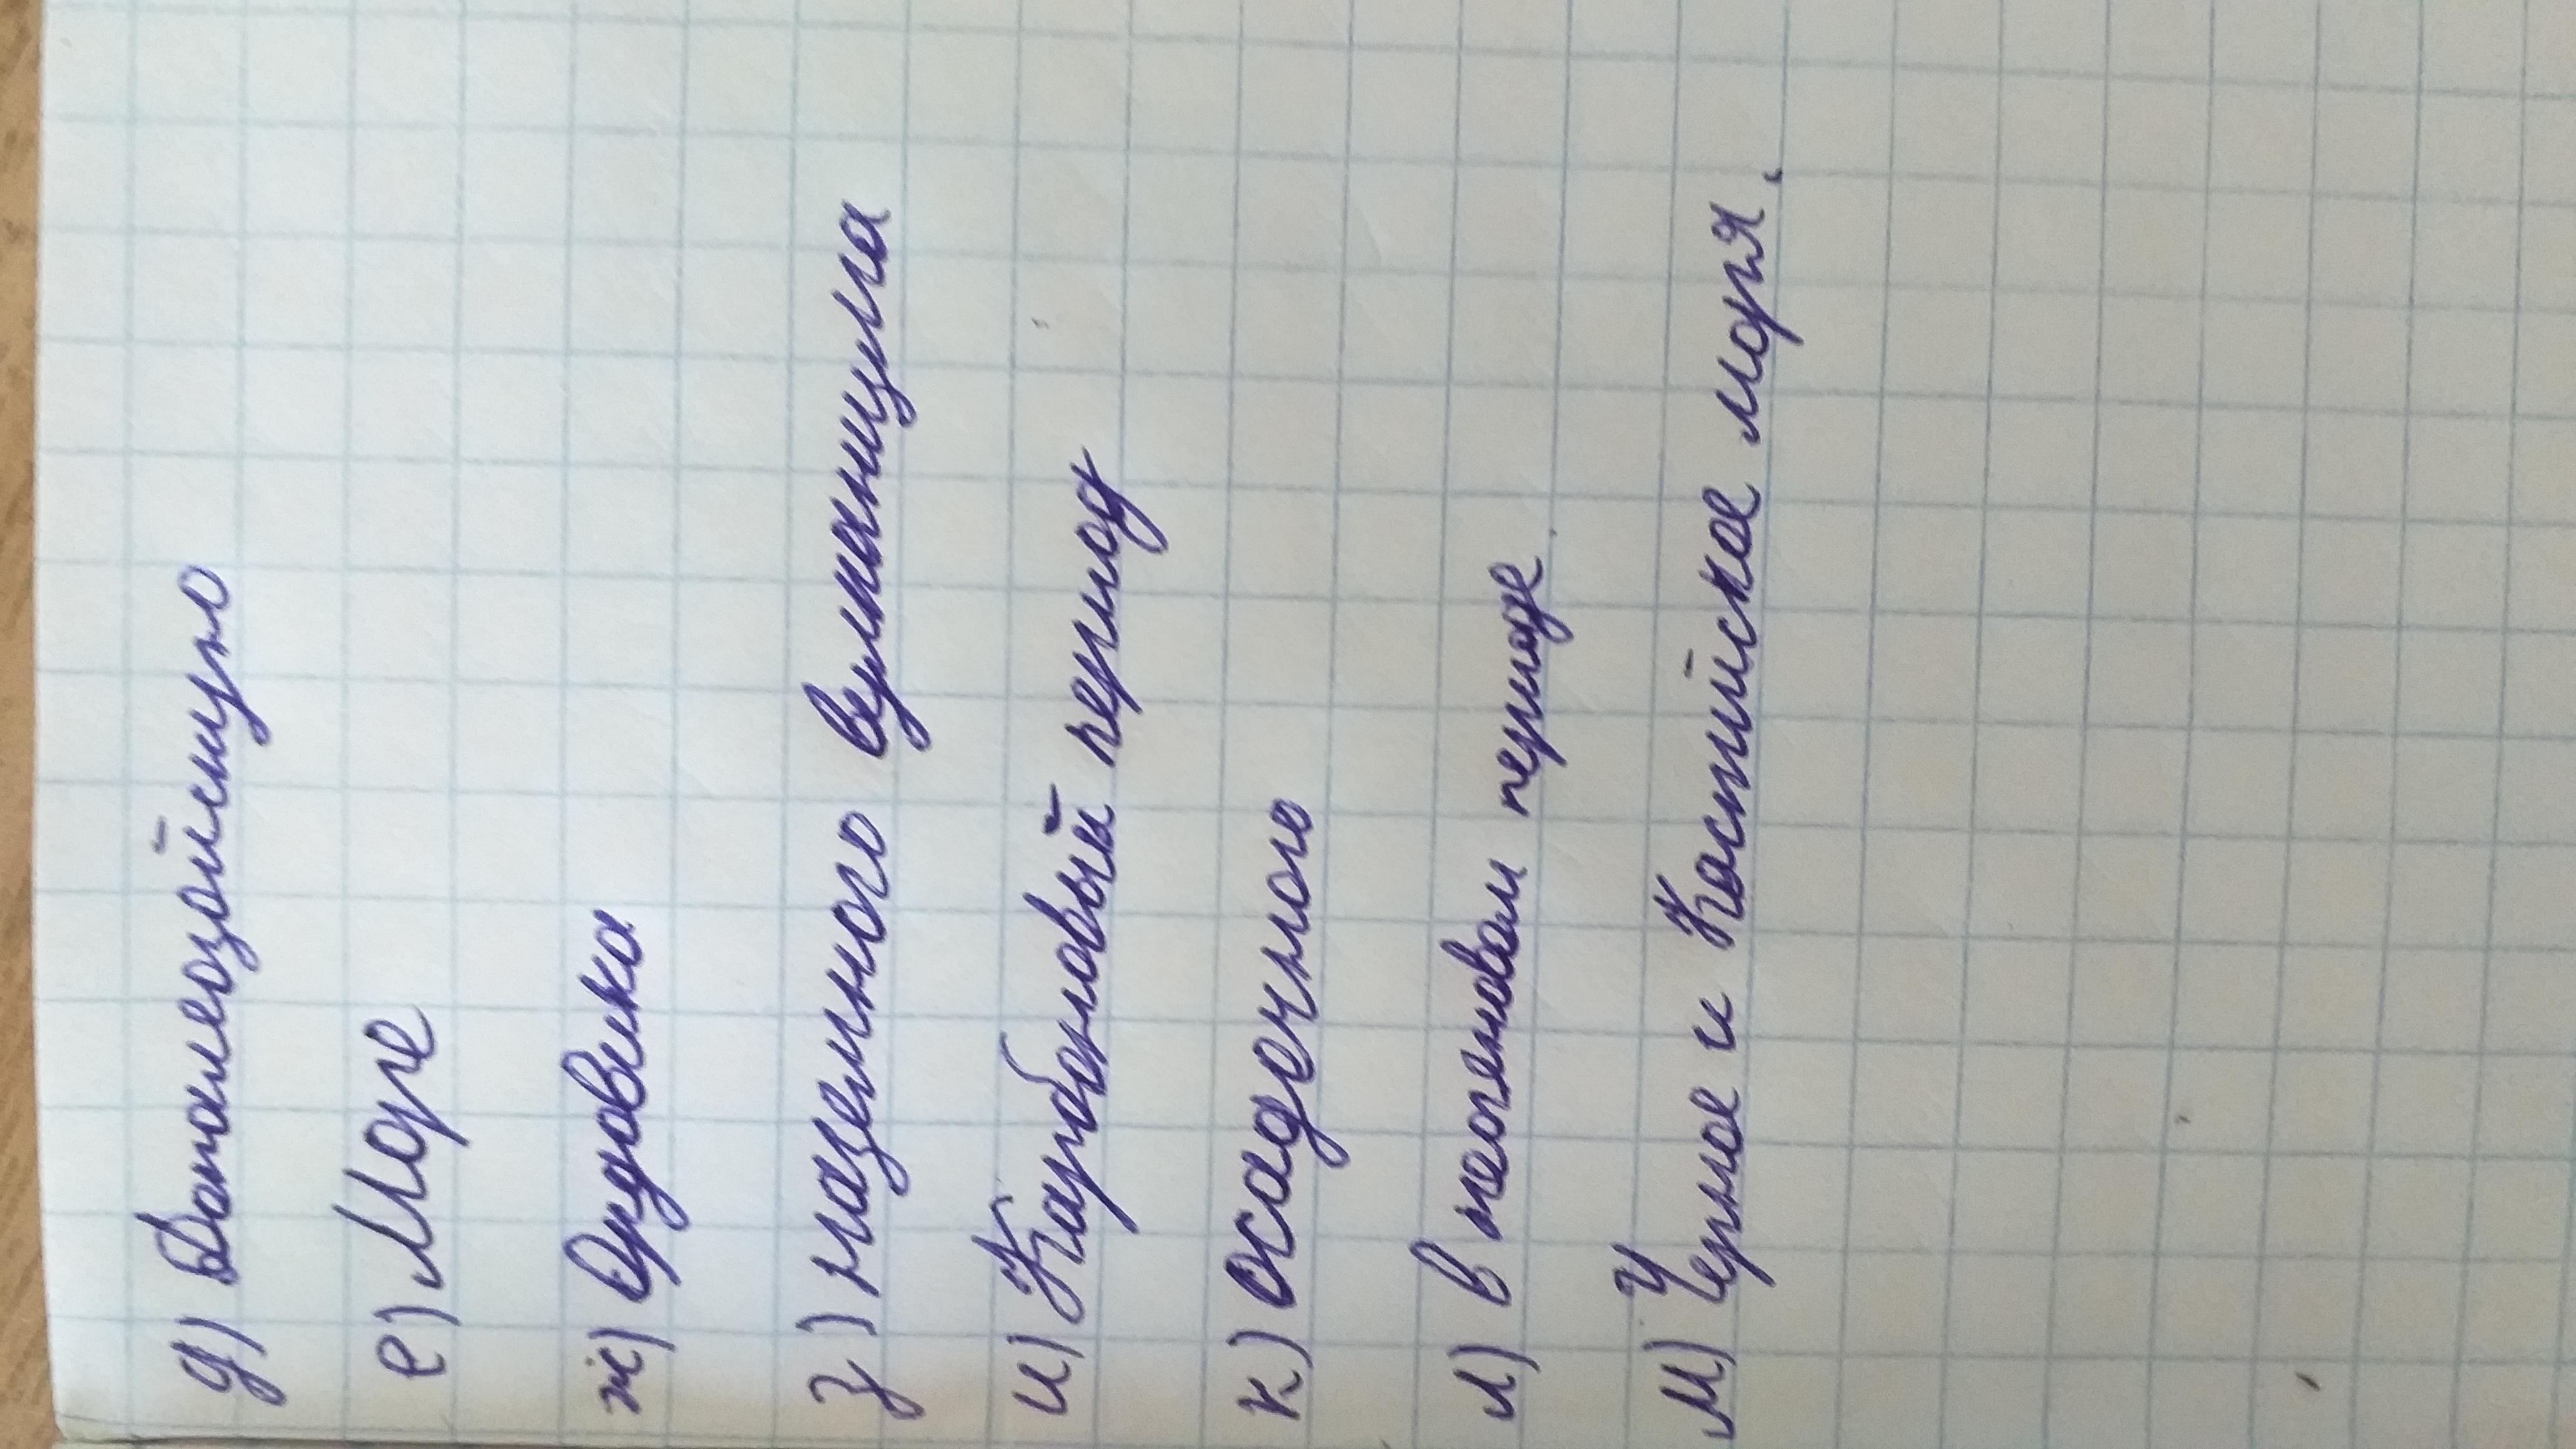 д) Допалеозойскую
е) Море
ж) Ордовика
з) наземного вулканизма
и) Карбоновый период
к) осадочного
л) в неогеновом периоде
м) Черное и Каспийское моря.